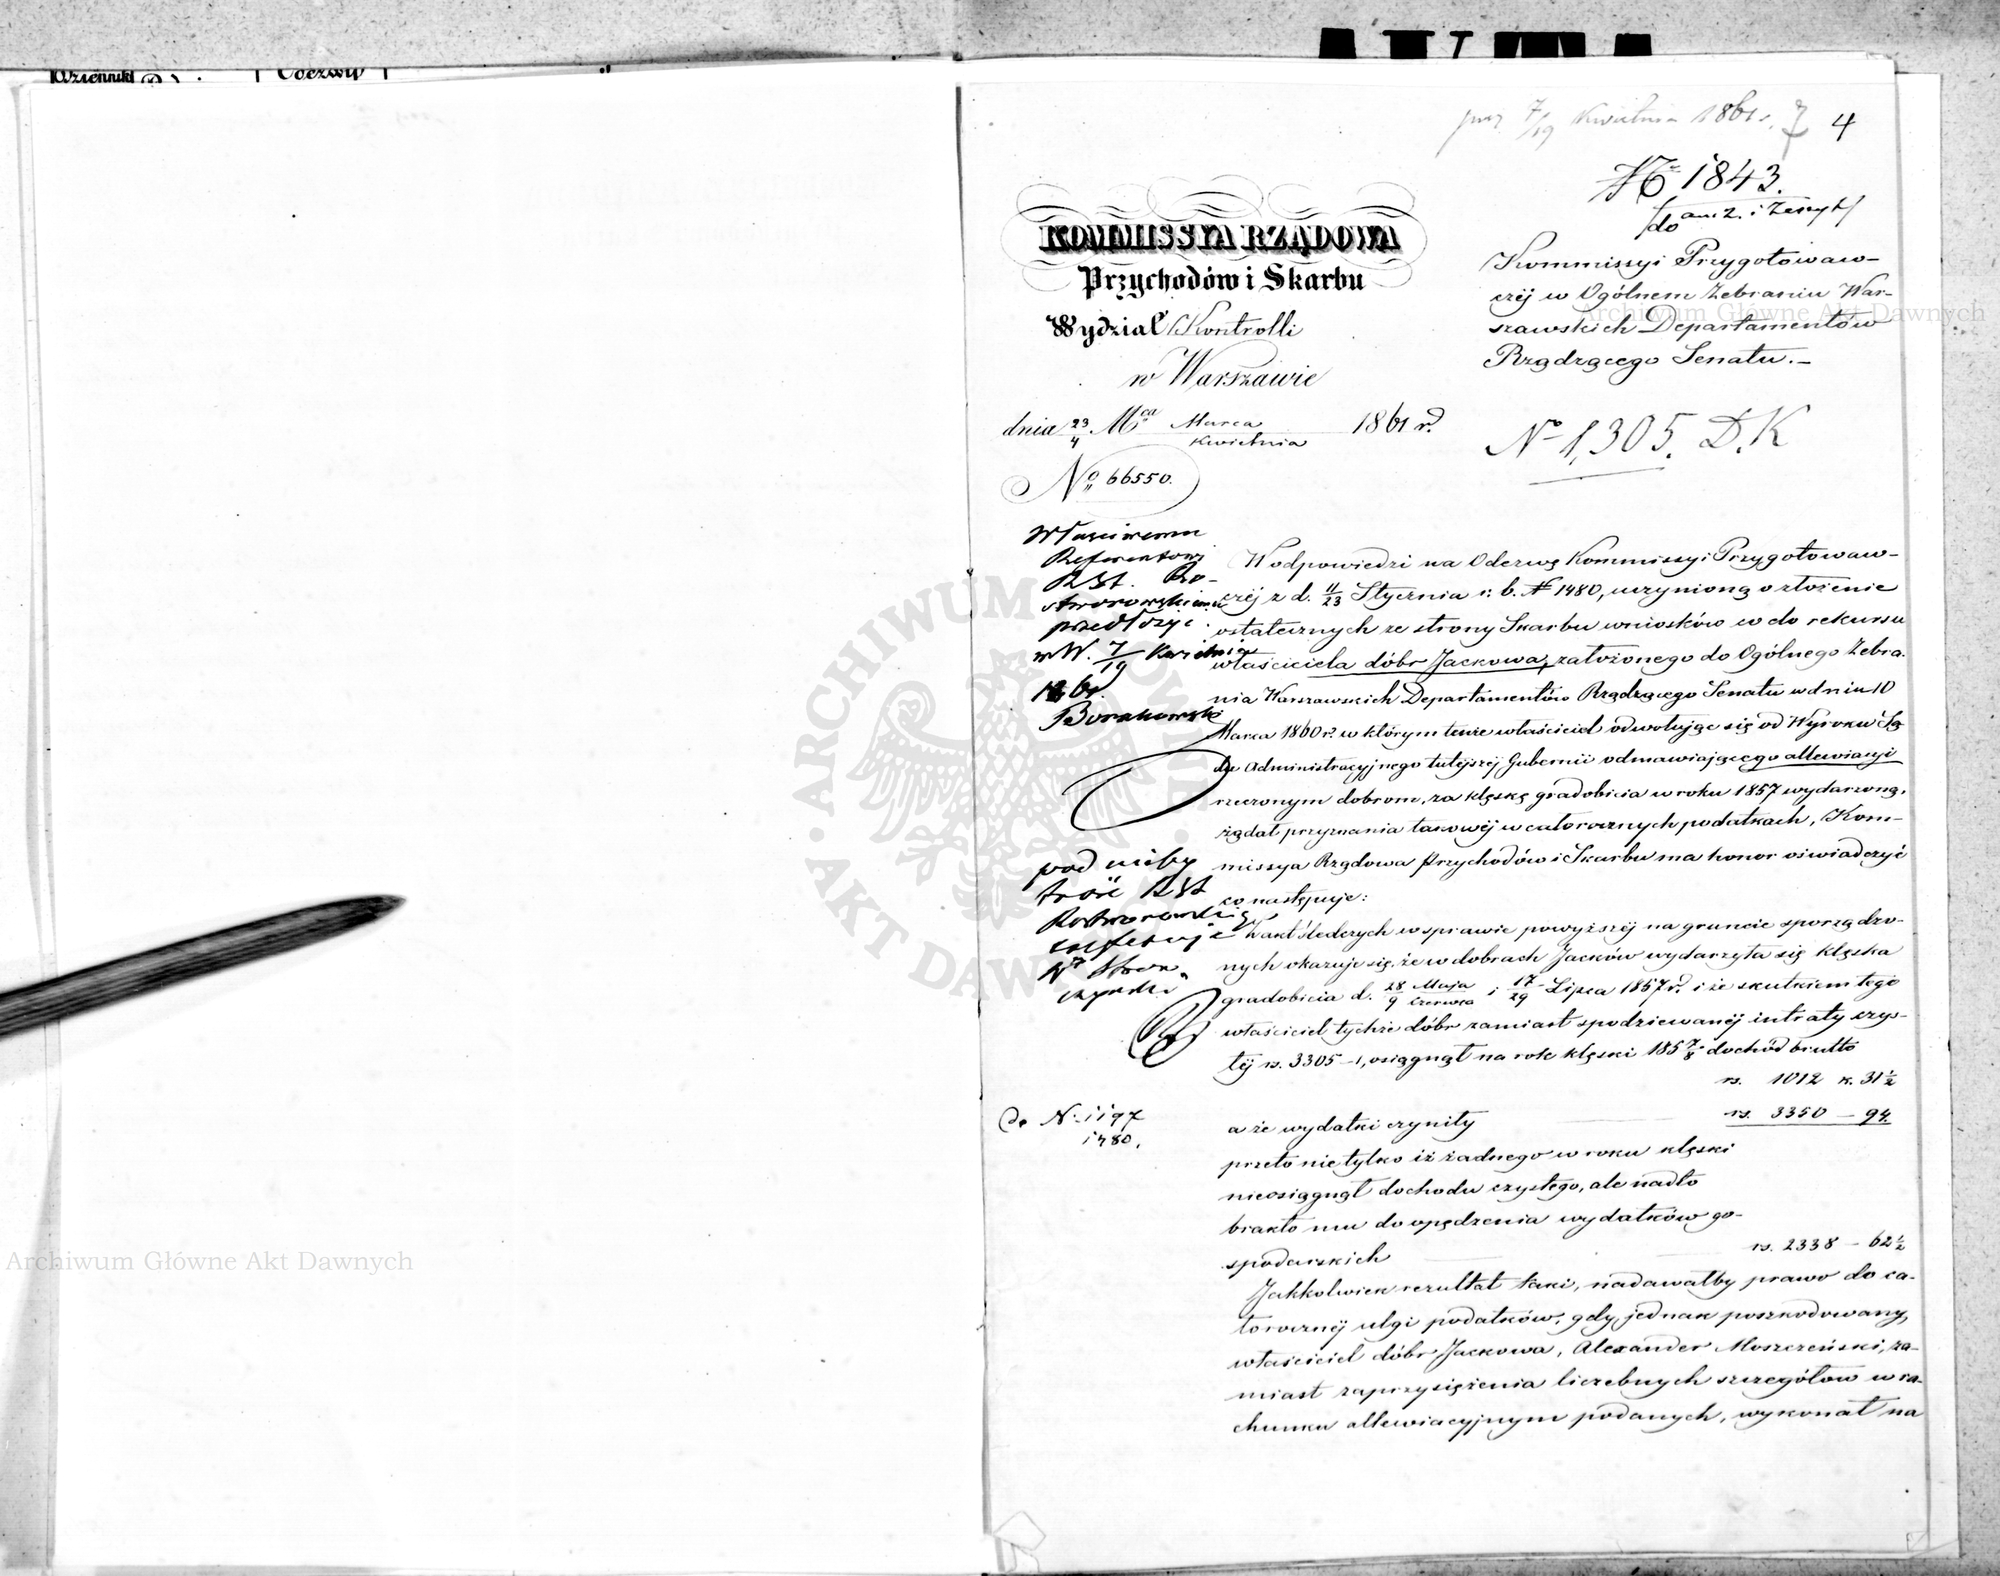 4
№ 1843.
KOMMISSYA RZĄDOWA
Przychodów i Skarbu
Wydział Kontrolli
w Warszawie
dnia 23/4 Mca Marca/Kwietnia 1861 r.
No 66550.
Kommissyi Przygotowaw-
czéj w Ogólnem Zebraniu War-
szawskich Departamentów
Rządzącego Senatu.–
No 1,305. D.K
prez 7/19 Kwietnia 1861 r.
Właściwemu
Referentowi
RSt. Ro-
stworowskiemu
przedłożyć.
w W. 7/19 Kwietnia
186 r.
W odpowiedzi na Odezwę Kommissyi Przygotowaw-
czéj z d. 11/23 Stycznia r. b. № 1480, uczynioną o złożenie
ostatecznych ze strony Skarbu wniosków w do rekursu
właściciela dóbr Jackowa, założonego do Ogólnego Zebra-
nia Warszawskich Departamentów Rządzącego Senatu w dniu 10
Marca 1860 r. w którym tenże właściciel odwołując się od Wyroku Są
du Administracyjnego tutejszéj Gubernii odmawiającego allewiacyi
rzeczonym dobrom, za klęskę gradobicia w roku 1857 wydarzoną,
żądał przyznania takowéj w całorocznych podatkach, Kom-
missya Rządowa Przychodów i Skarbu ma honor oświadczyć
co następuje:
Z akt śledczych w sprawie powyższéj na gruncie sporządzo-
nych okazuje się, że w dobrach Jacków wydarzyła się klęska
gradobicia d. 28/9 Maja/Czerwca i 17/29 Lipca 1857 r. i że skutkiem tego
właściciel tychże dóbr zamiast spodziewanéj intraty czys-
téj rs. 3305–1, osiągnął na rok klęski 1857/8 dochód brutto
rs. 1012 k. 31½
a że wydatki czyniły rs. 3350 – 94.
przeto nietylko iż żadnego w roku klęski
nieosiągnął dochodu czystego, ale nadto
brakło mu do opędzenia wydatków go-
spodarskich rs. 2338 – 62½
Jakkolwiek rezultat taki, nadawałby prawo do ca-
łorocznéj ulgi podatków, gdy jednak poszkodowany
właściciel dóbr Jackowa, Alexander Moszczeński, za-
miast zaprzysiężenia liczebnych szczegółów w ra-
chunku allewiacyjnym podanych, wykonał na
do N. 1197
1480.
Archiwum Główne Akt Dawnych
Archiwum Główne Akt Dawnych